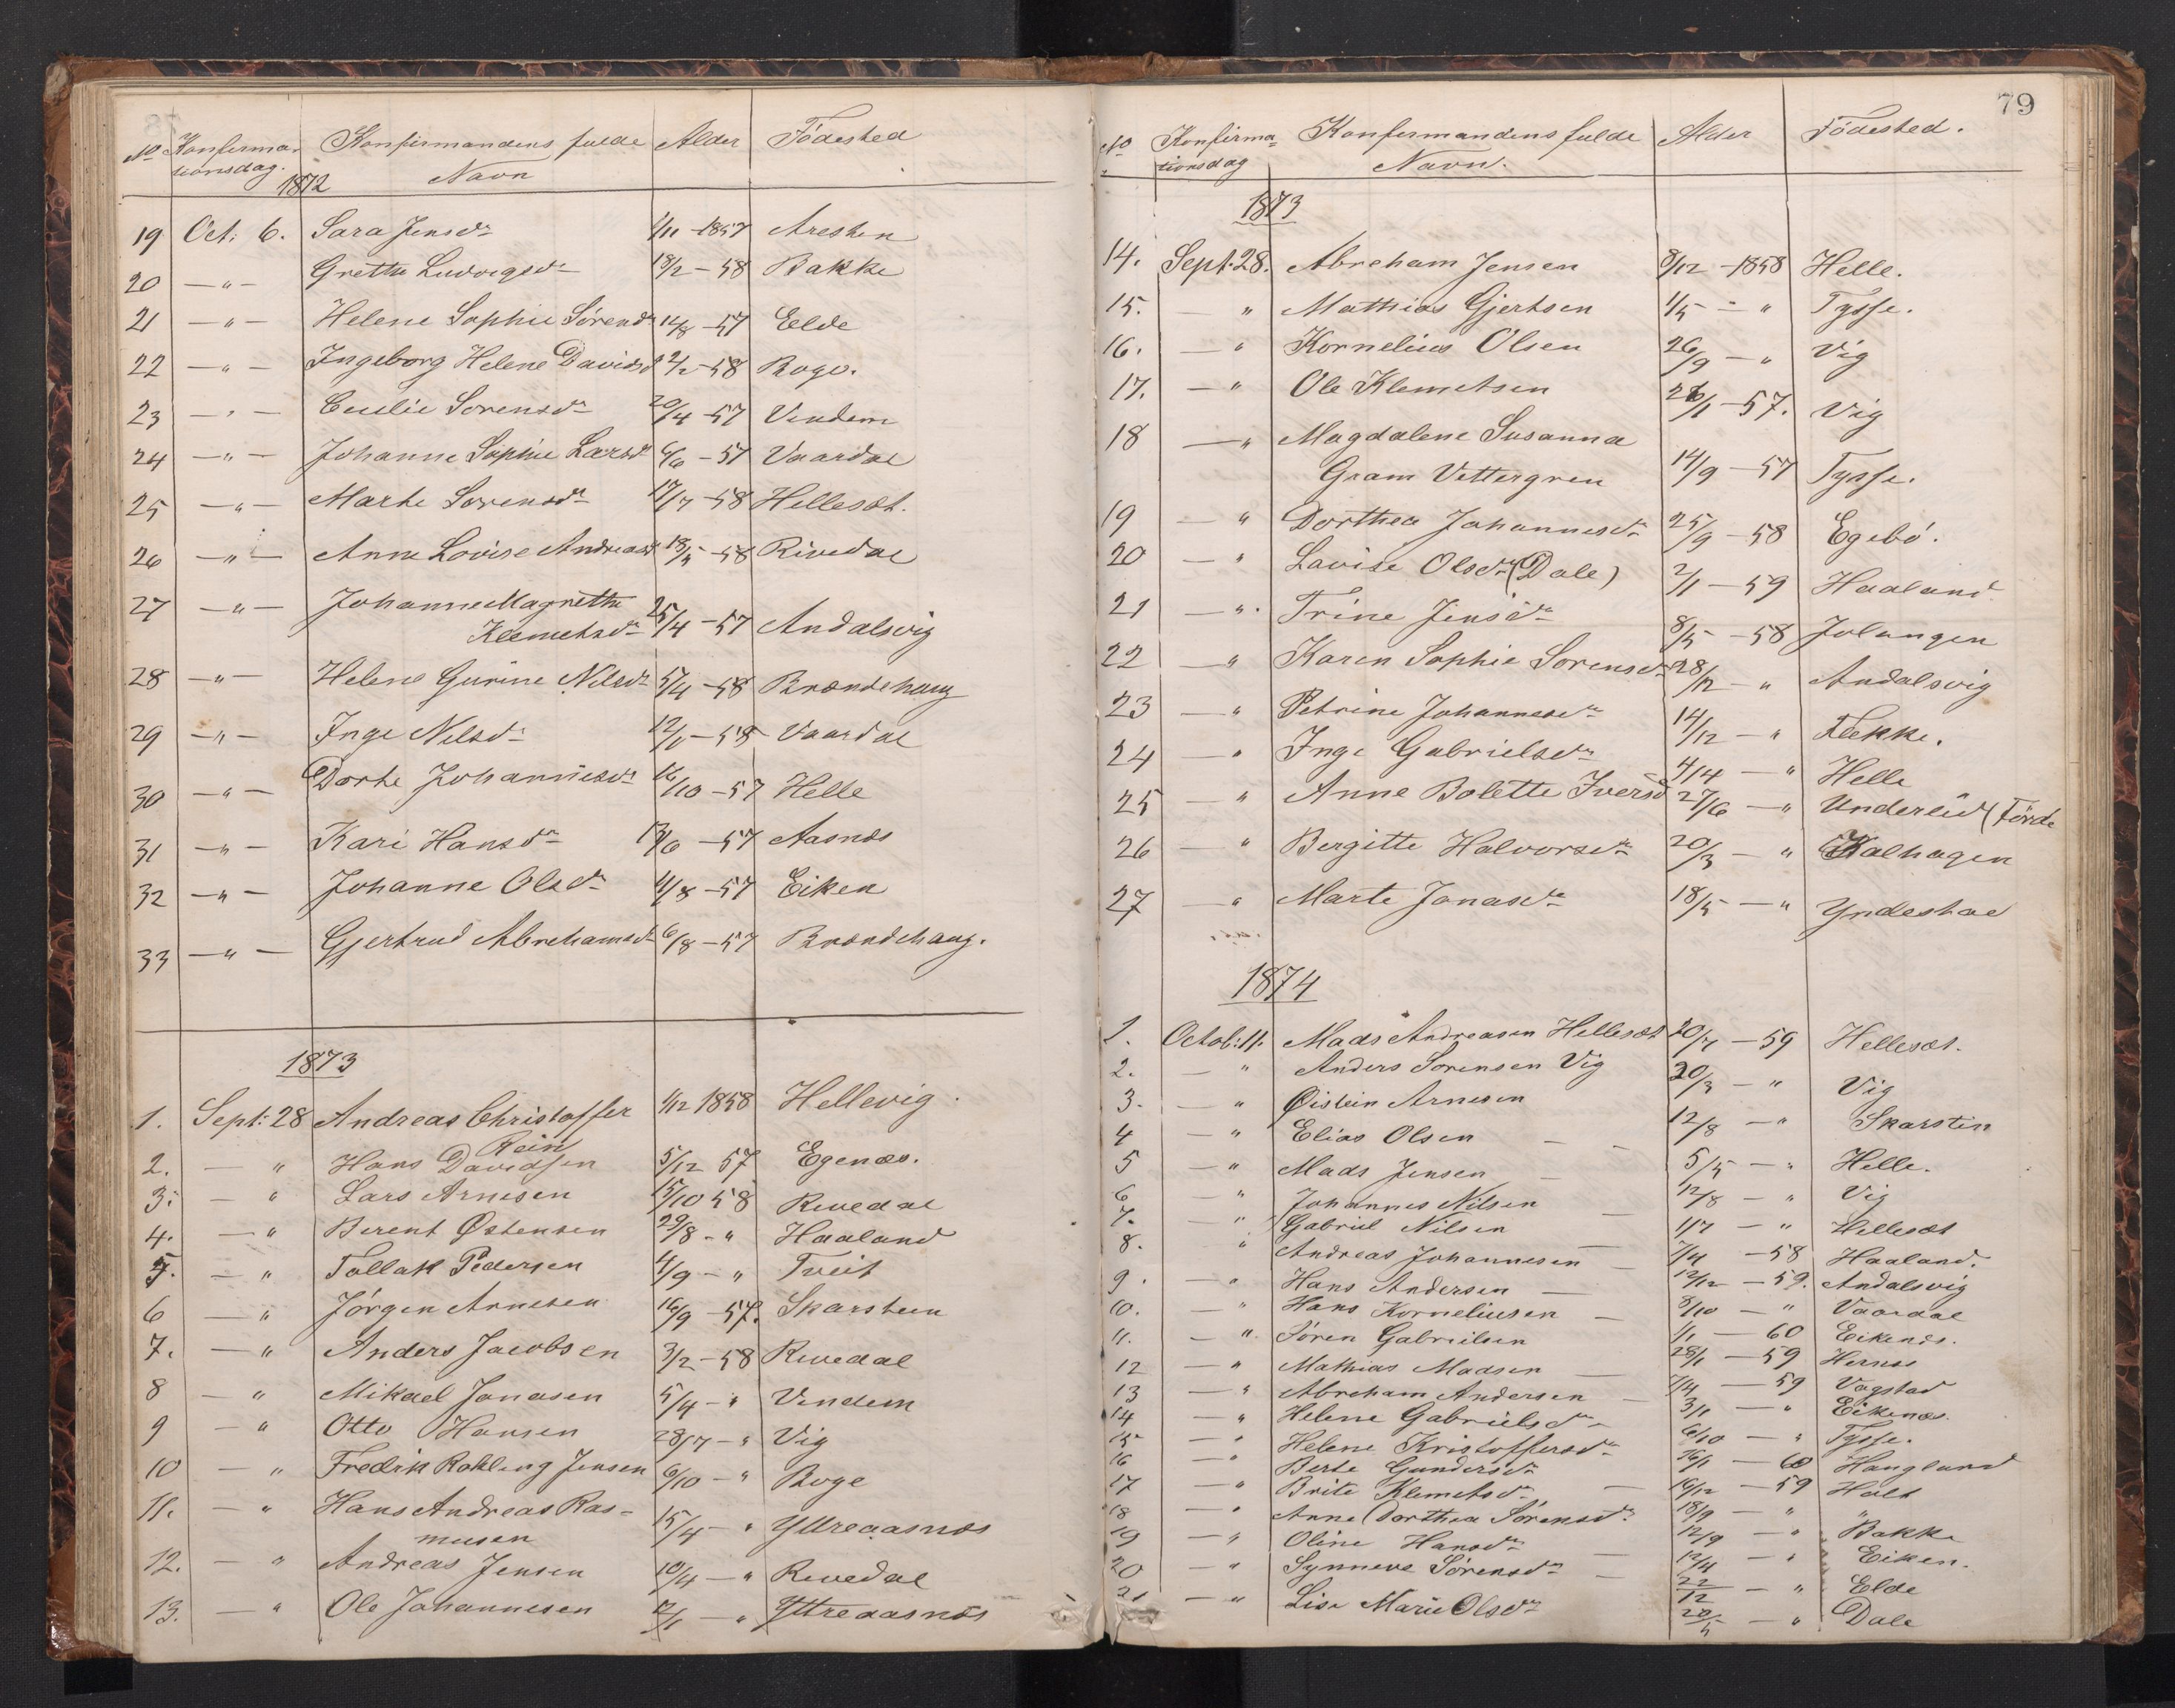 No Konfirma- Konfirmandens fulde Alder Fødested
tionsdag. Navn
1872
19 Oct: 6. Sara Jensdr 1/11 - 1857 Aresten
20 - " - Grethe Ludvigsdr 18/2 - 58 Bakke
21 - " - Helene Sophie Sørensdr 14/8 - 57 Eelde
22 - " - Ingeborg Helene Davidsd 22/2 - 58 Boge.
23 - " - Cecilie Sorensdr 20/4 - 57 Vindem
24 - " - Johanne Sophie Larsdr 6/6 - 57 Vaardal
25 - " - Marte Sorensdr 17/7 - 58 Hellesæt.
26 - " - Anne Lovise Andreasdr 18/5 - 58 Rivedal
27 - " - Johanne Magrethe
Klemetsdr 25/4 - 57 Andalsvig
28 - " - Helene Gurine Nilsdr 5/4 - 58 Brændehaug
29 - " - Inge Nilsdr 12/1 - 58 Vaardal
30 - " - Dorte Johannesdr 16/10 - 57 Helle
31 - " - Kari Hansdr 13/6 - 57 Aasnæs
32 - " - Johanne Olsdr 4/8 - 57 Eiken
33 - " - Gjertrud Abrehamsdr 6/8 - 57 Brændehaug.
1873
1. Sept: 28 Andreas Christoffer 1/12 1858 Hellevig.
Rein
2. - " Hans Davidsen 5/12 57 Egenæs.
3. - " Lars Arnesen 15/10 58 Rivedal
4. - " Berent Østensen 29/8 - " Haaland
5. - " Tollak Pedersen 4/9 - " Tveit
6 - " Jørgen Arnesen 16/9 - 57. Skarsteen
7. - " Anders Jacobsen 3/2 - 58 Rivedal
8 - " Mikael Jonasen 5/4 - " Vindem
9 - " Otto Hansen 28/7 - " Vig
10 - " Fredrik Rohling Jensen 6/10 - " Boge
11. - " Hans Andreas Ras-
musen 15/4 - " Yttreaasnæs
12. - " Andreas Jensen 10/4 - " Rivedal
13. - " Ole Johannesen 2/1 - " Yttreaasnæs
79
No Konfirma- Konfirmandens fulde Alder Fødested.
tionsdag Navn.
1873
14. Sept: 28. Abreham Jensen 8/12 - 1858 Helle.
15. - " Mathias Gjertsen 1/5 - " Tysse.
16. - " Kornelius Olsen 26/9 - " Vig
17. - " Ole Klemetsen 26/1 - 57. Vig
18 - " Magdalene Susanna
Gram Vettergren 14/9 - 57 Tysse.
19 - " Dorthea Johannesdr 25/9 - 58 Egebø.
20 - " Lavise Olsdr (Dale) 2/1 - 59 Haaland
21 - " Trine Jensdr 8/5 - 58 Jolangen
22 - " Karen Sophie Sorensdr 28/12 - " Andalsvig
23 - " Petrine Johannesdr 14/12 - " Flekke.
24 - " Inge Gabrielsdr 4/4 - " Helle
25 - " Anne Bolette Iversd 27/6 - " Underlid (Førde
26 - " Bergitte Halvorsdr 20/3 - " Kalhagen
27 - " Marte Jonasdr 18/5 - " Yndestad
1874
1. Octob: 11. Mads Andreasen Hellesæt 20/7 - 59 Hellesæt.
2. - " Anders Sorensen Vig 20/3 - " Vig
3. - " Øistein Arnesen 12/8 - " Skarstin
4 - " Elias Olsen 5/5 - " Helle.
5 - " Mads Jensen 12/8 - " Vig
6 - " Johannes Nilsen 1/7 - " Hellesæt
7. - " Gabriel Nilsen 7/11 - 58 Haaland.
8. " Andreas Johannesen 12/12 - 59. Andalsvig
9. - " Hans Andersen 8/10 - " Vaardal
10. - " Hans Korneliusen 1/1 - 60 Eikenæs.
11. - " Søren Gabrielsen 28/1 - 59 Hernæs
12 - " Mathias Madsen 7/4 - 59 Vagstad
13 - " Abreham Andersen 3/1 - " Eikenæs.
14 - " Helene Gabrielsdr 6/10 - " Tysse.
15 - " Helene Kristoffersdr 16/1 - 60 Haugland
16 - " Berte Gundersdr 16/12 - 59 Holt
17 - " Brite Klemetsdr 18/9 - " "
18 " Anne Dorthea Sørensdr 12/9 - " Bakke
19 - " Oline Hansdr 12/11 - " Eiken.
20 - " Synneve Sørensdr 22/12 - " Elde
21 - " Lise Marie Olsdr 20/5 - " Dale